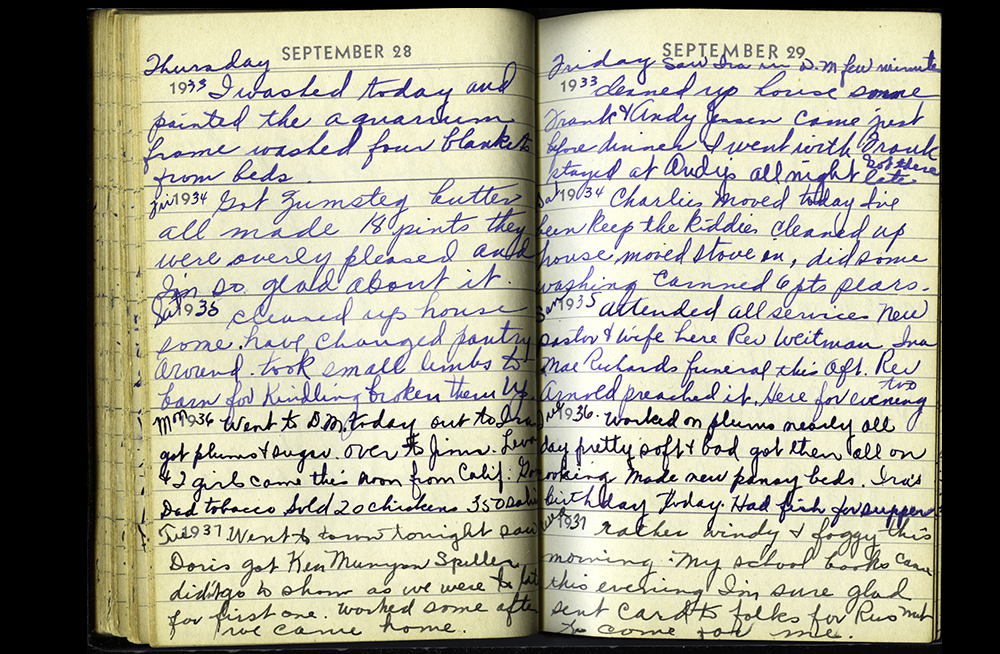 SEPTEMBER 28
Thursday
1933 I washed today and
painted the aquarium
frame washed four blankets
from beds.
Fri 1934 Got Zumsteg butter
all made 18 pints they
were overly pleased and
I'm so glad about it.
Sat 1935 cleaned up house
some, have changed pantry
around. took small limbs to
barn for Kindling broken them up.
Mon 1936 Went to D.M. today out to Ira
got plums & sugar. over to Jims.
& 2 girls came this noon from Calif.
Dad tobacco Sold 20 chickens 350
Tue 1937 Went to town tonight saw
Doris got Ken Munyon Spiller
didn't go to show as we were to late
for first one. worked some after
we came home.
SEPTEMBER 29
Friday Saw Ira in D.M few minute
1933 cleaned up house some
Frank & Andy Jessen came just
before dinner I went with Frank
stayed at Andys all night Got there late
Sat 1934 Charlies moved today I've
been keep the kiddies cleaned up
house, moved stove in, did some
washing Canned 6 pts pears.
Sun 1935 attended all services New
pastor & wife here Rev Weitman, Ina
Mae Richards funeral this Aft. Rev
Arnold preached it. Here for evening too
Tue 1936. Worked on plums nearly all
day pretty soft & bad got them all on
cooking Made new pansy beds. Ira's
birthday Today. Had fish for supper
Wed 1937 rather windy & foggy this
morning. My school books came
this evening I'm sure glad
sent card to folks for Rus not
to come for me.